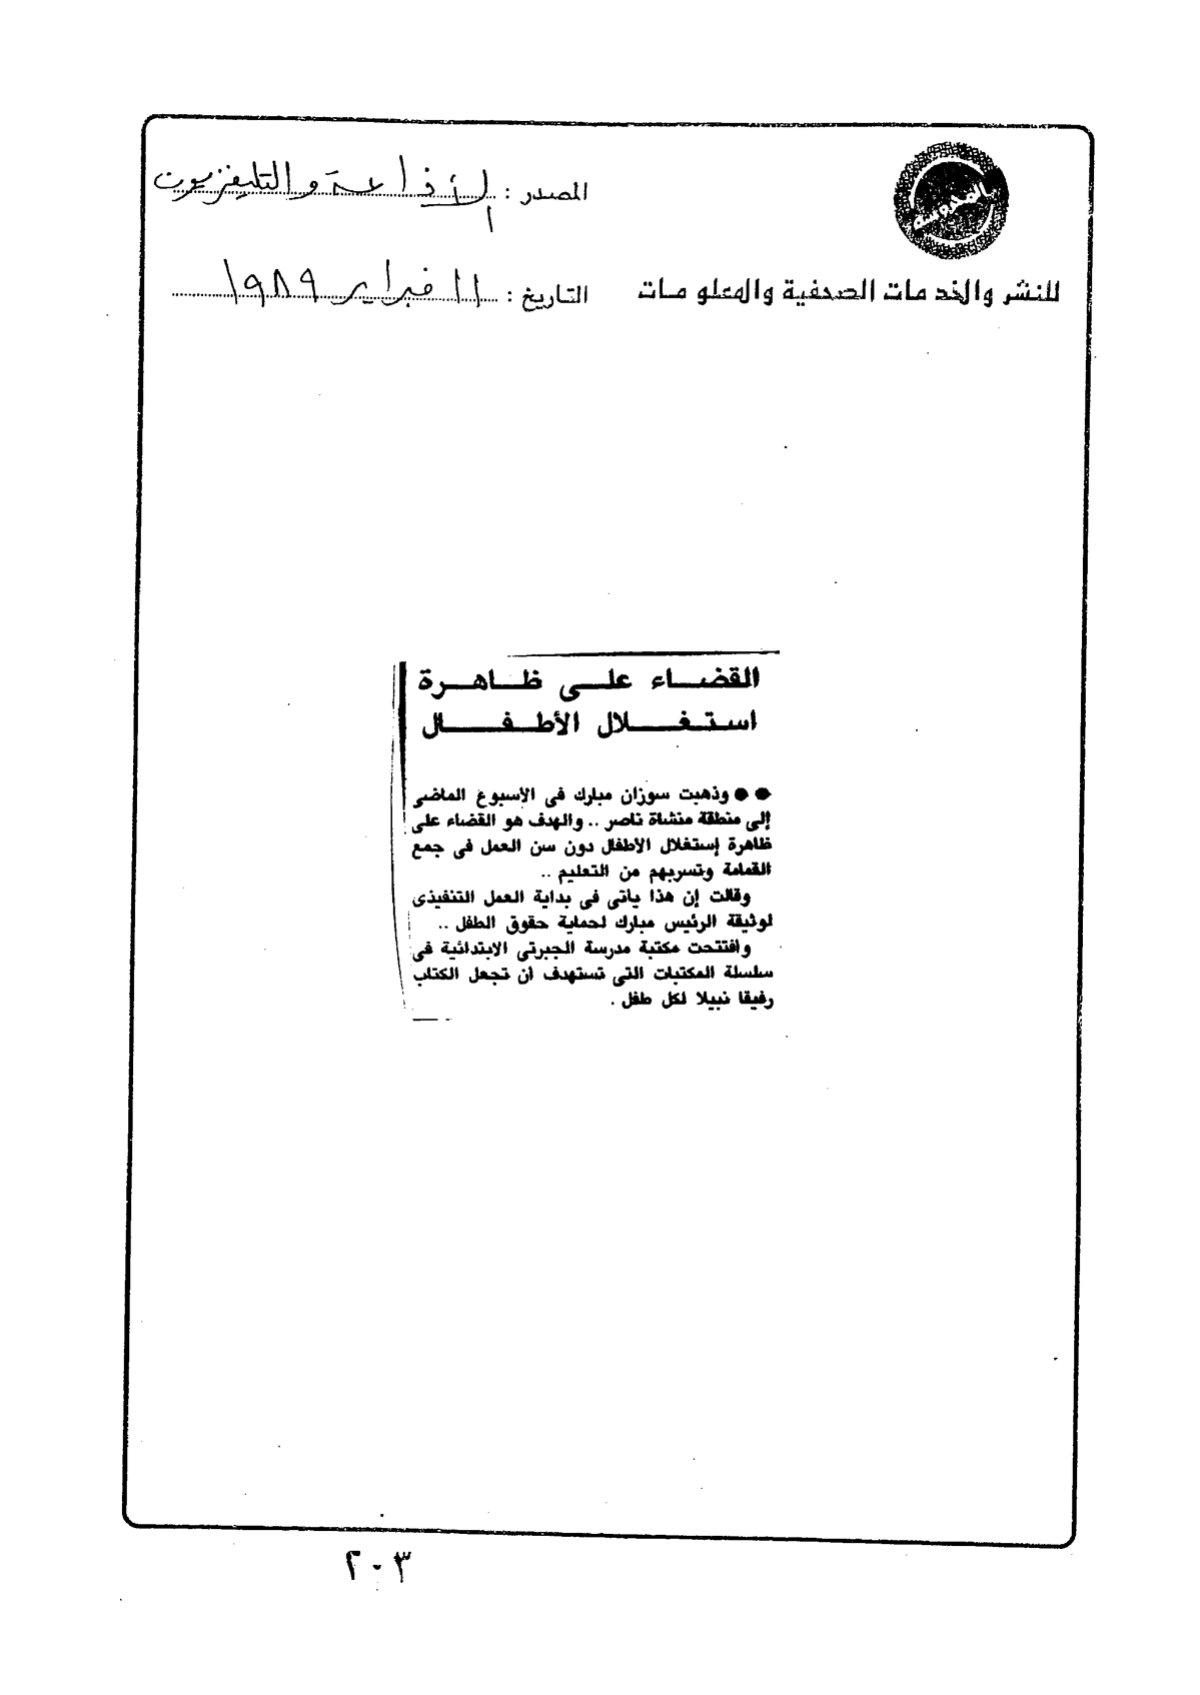 المصدر : الأذاعة والتليفزيون
للنشر والخدمات الصحفية والمعلومات
التاريخ : ١١ فبراير ١٩٨٩
القضاء على ظاهرة
استغلال الأطفال
●● وذهبت سوزان مبارك فى الأسبوع الماضى
إلى منطقة منشاة ناصر .. والهدف هو القضاء على
ظاهرة إستغلال الاطفال دون سن العمل فى جمع
القمامة وتسربهم من التعليم ..
وقالت إن هذا ياتى فى بداية العمل التنفيذى
لوثيقة الرئيس مبارك لحماية حقوق الطفل ..
وافتتحت مكتبة مدرسة الجبرتى الابتدائية فى
سلسلة المكتبات التى تستهدف ان تجعل الكتاب
رفيقا نبيلا لكل طفل .
٢٠٣